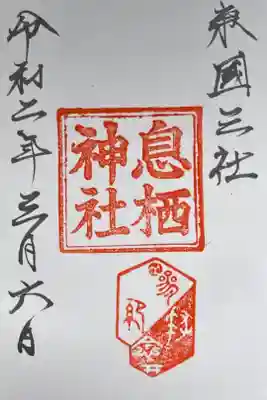 東國三社
息栖
神社
令和二年三月六日